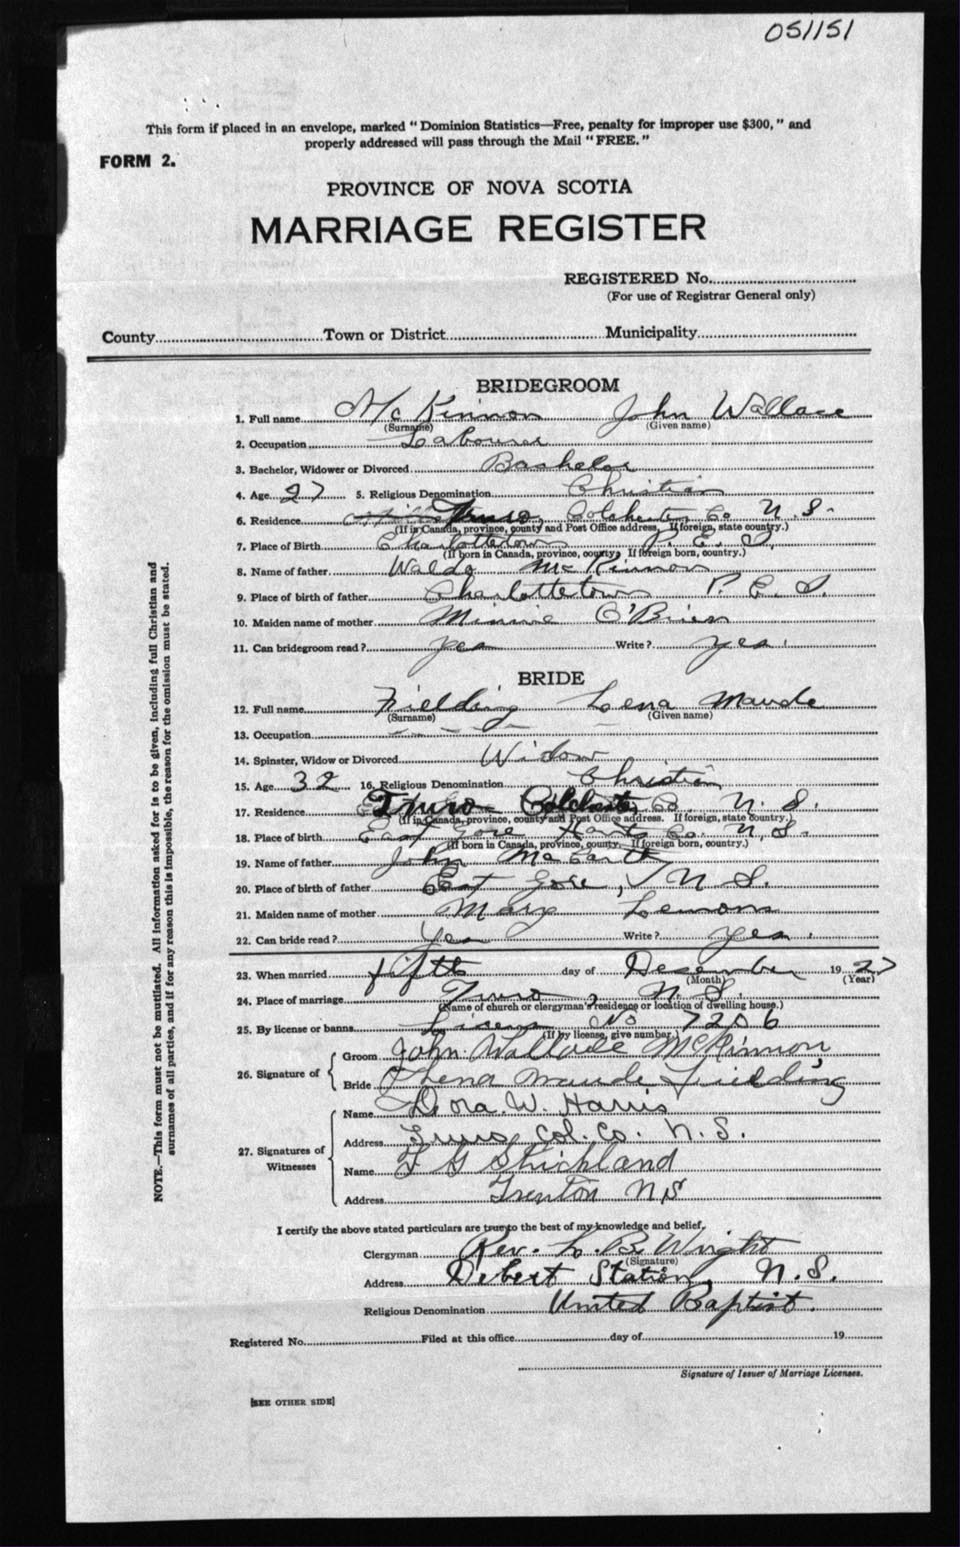 051151
This form if placed in an envelope, marked "Dominion Statistics—Free, penalty for improper use $300," and
properly addressed will pass through the Mail "FREE."
FORM 2.
PROVINCE OF NOVA SCOTIA
MARRIAGE REGISTER
REGISTERED No.
(For use of Registrar General only)
County Town or District Municipality
BRIDEGROOM
1. Full name McKinnon John Wallace
(Surname) (Given name)
2. Occupation Labourer
3. Bachelor, Widower or Divorced Bachelor
4. Age 27 5. Religious Denomination Christian
6. Residence Truro, Colchester Co N.S.
(If in Canada, province, county and Post Office address. If foreign, state country.)
7. Place of Birth Charlottetown P.E.I.
(If born in Canada, province, county. If foreign born, country.)
8. Name of father Waldo McKinnon
9. Place of birth of father Charlottetown P.E.I.
10. Maiden name of mother Minnie O'Brien
11. Can bridegroom read? yes Write? yes.
BRIDE
12. Full name Fielding Lena Maude
(Surname) (Given name)
13. Occupation — — — —
14. Spinster, Widow or Divorced Widow
15. Age 32 16. Religious Denomination Christian
17. Residence Truro Colchester Co. N.S.
(If in Canada, province, county and Post Office address. If foreign, state country.)
18. Place of birth East Gore Hants Co. N.S.
(If born in Canada, province, county. If foreign born, country.)
19. Name of father John
20. Place of birth of father East Gore, N.S.
21. Maiden name of mother Mary Lemons
22. Can bride read? Yes Write? yes.
23. When married fifth day of December 1927
(Month) (Year)
24. Place of marriage Truro, N.S.
(Name of church or clergyman's residence or location of dwelling house.)
25. By license or banns License No 7206
(If by license, give number.)
26. Signature of { Groom John Wallace McKinnon
Bride Thena Maude Fielding
27. Signatures of Witnesses { Name Dora. W. Harris
Address Truro, Col. Co. N.S.
Name F G Strickland
Address Trenton N S
I certify the above stated particulars are true to the best of my knowledge and belief.
Clergyman Rev. L. B. Wright
(Signature)
Address Debert Station, N.S.
Religious Denomination United Baptist.
Registered No. Filed at this office day of 19
Signature of Issuer of Marriage Licenses.
[SEE OTHER SIDE]
NOTE.—This form must not be mutilated. All information asked for is to be given, including full Christian and
surnames of all parties, and if for any reason this is impossible, the reason for the omission must be stated.